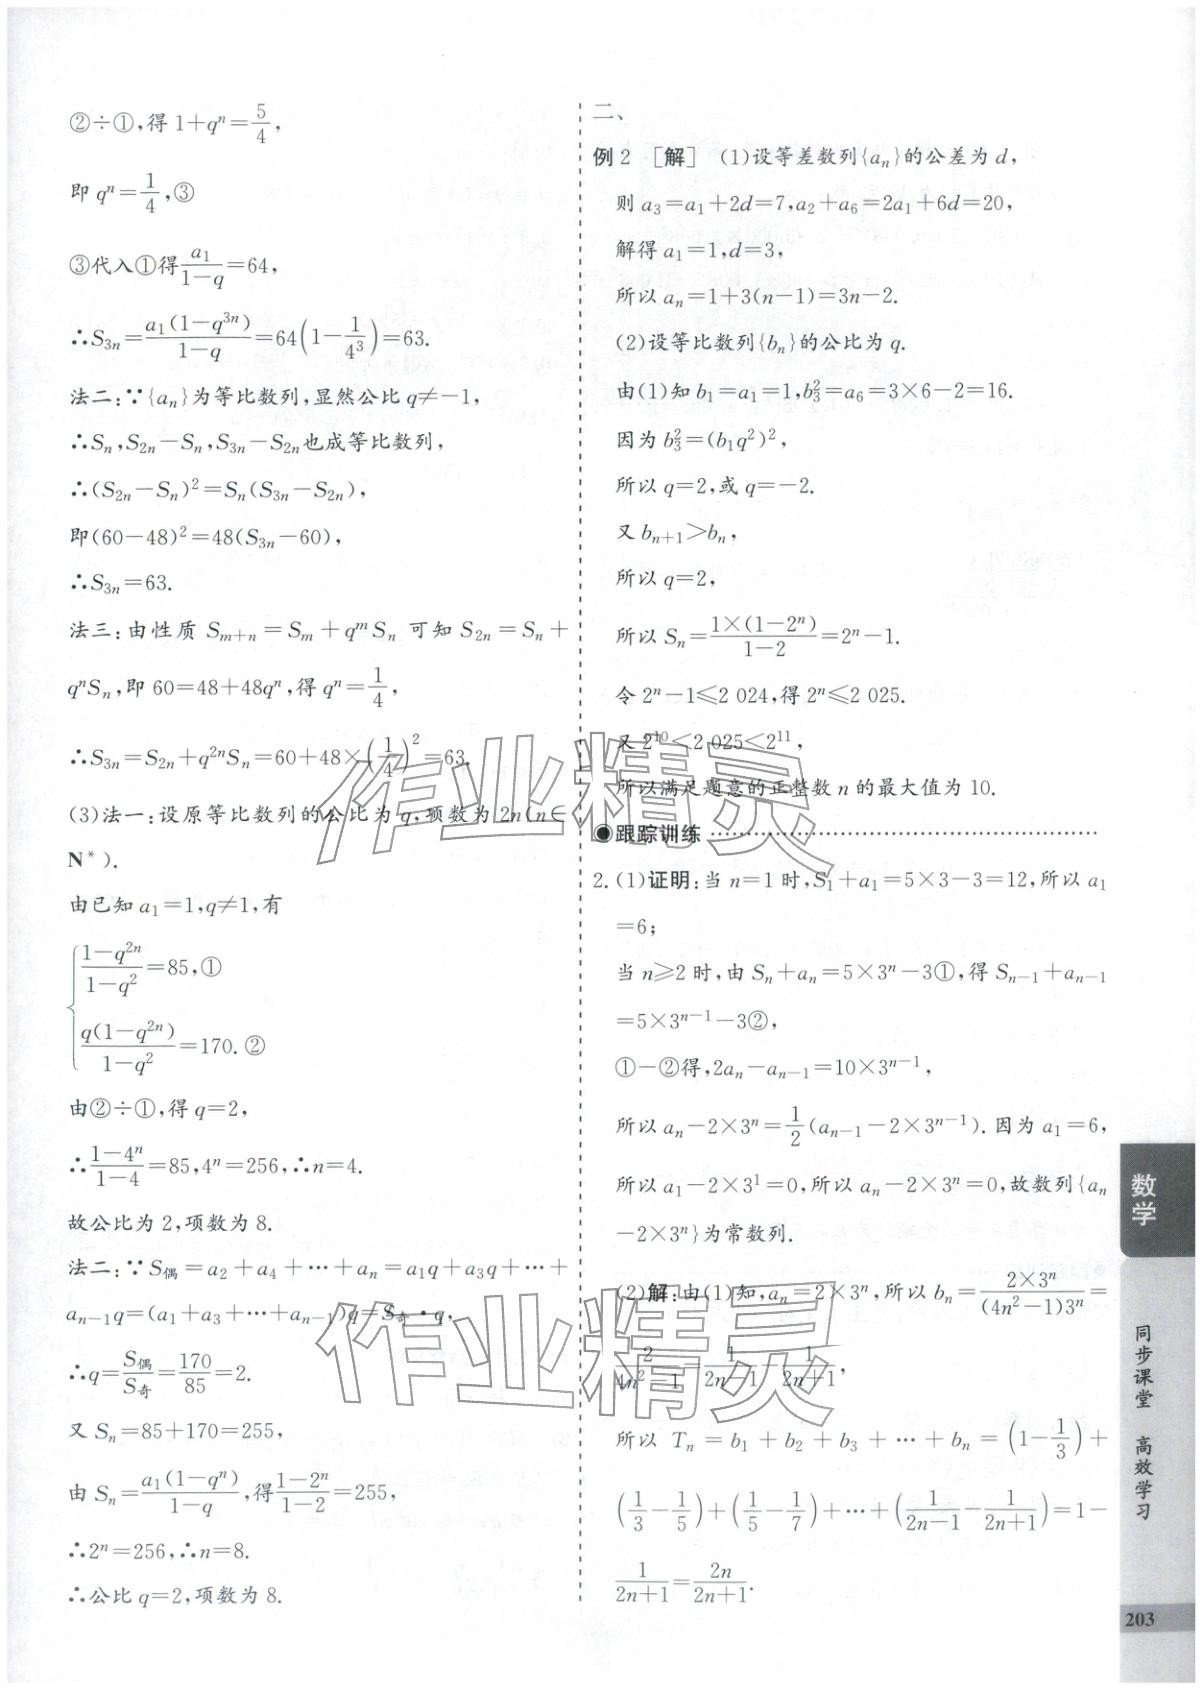 ②÷①,得 1+qⁿ=5/4,
即 qⁿ=1/4,③
③代入①得 a₁/(1-q)=64,
∴S₃ₙ=a₁(1-q³ⁿ)/(1-q)=64(1-1/4³)=63.
法二:∵{aₙ}为等比数列,显然公比 q≠-1,
∴Sₙ,S₂ₙ-Sₙ,S₃ₙ-S₂ₙ也成等比数列,
∴(S₂ₙ-Sₙ)²=Sₙ(S₃ₙ-S₂ₙ),
即(60-48)²=48(S₃ₙ-60),
∴S₃ₙ=63.
法三:由性质 Sₘ₊ₙ=Sₘ+qᵐSₙ 可知 S₂ₙ=Sₙ+
qⁿSₙ,即 60=48+48qⁿ,得 qⁿ=1/4,
∴S₃ₙ=S₂ₙ+q²ⁿSₙ=60+48×(1/4)²=63.
(3)法一:设原等比数列的公比为 q,项数为 2n(n∈
N*).
由已知 a₁=1,q≠1,有
{(1-q²ⁿ)/(1-q²)=85,①
q(1-q²ⁿ)/(1-q²)=170.②
由②÷①,得 q=2,
∴(1-4ⁿ)/(1-4)=85,4ⁿ=256,∴n=4.
故公比为 2,项数为 8.
法二:∵S偶=a₂+a₄+…+aₙ=a₁q+a₃q+…+
aₙ₋₁q=(a₁+a₃+…+aₙ₋₁)q=S奇·q,
∴q=S偶/S奇=170/85=2.
又 Sₙ=85+170=255,
由 Sₙ=a₁(1-qⁿ)/(1-q),得(1-2ⁿ)/(1-2)=255,
∴2ⁿ=256,∴n=8.
∴公比 q=2,项数为 8.
二、
例 2 [解] (1)设等差数列{aₙ}的公差为 d,
则 a₃=a₁+2d=7,a₂+a₆=2a₁+6d=20,
解得 a₁=1,d=3,
所以 aₙ=1+3(n-1)=3n-2.
(2)设等比数列{bₙ}的公比为 q.
由(1)知 b₁=a₁=1,b₃²=a₆=3×6-2=16.
因为 b₃²=(b₁q²)²,
所以 q=2,或 q=-2.
又 bₙ₊₁>bₙ,
所以 q=2,
所以 Sₙ=1×(1-2ⁿ)/(1-2)=2ⁿ-1.
令 2ⁿ-1≤2 024,得 2ⁿ≤2 025.
又 2¹⁰<2 025<2¹¹,
所以满足题意的正整数 n 的最大值为 10.
跟踪训练
2.(1)证明:当 n=1 时,S₁+a₁=5×3-3=12,所以 a₁
=6;
当 n≥2 时,由 Sₙ+aₙ=5×3ⁿ-3①,得 Sₙ₋₁+aₙ₋₁
=5×3ⁿ⁻¹-3②,
①-②得,2aₙ-aₙ₋₁=10×3ⁿ⁻¹,
所以 aₙ-2×3ⁿ=1/2(aₙ₋₁-2×3ⁿ⁻¹).因为 a₁=6,
所以 a₁-2×3¹=0,所以 aₙ-2×3ⁿ=0,故数列{aₙ
-2×3ⁿ}为常数列.
(2)解:由(1)知,aₙ=2×3ⁿ,所以 bₙ=2×3ⁿ/((4n²-1)3ⁿ)=
2/(4n²-1)=1/(2n-1)-1/(2n+1),
所以 Tₙ=b₁+b₂+b₃+…+bₙ=(1-1/3)+
(1/3-1/5)+(1/5-1/7)+…+(1/(2n-1)-1/(2n+1))=1-
1/(2n+1)=2n/(2n+1).
数学
同步课堂 高效学习
203
作业精灵
作业精灵